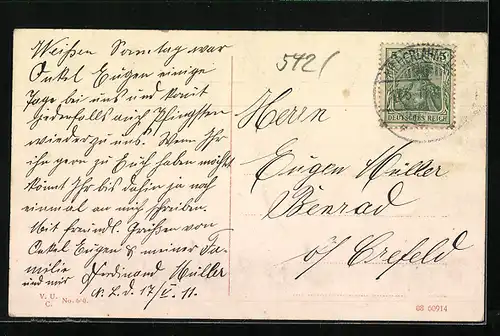 Weißen Sonntag war
Onkel Eugen einige
Tage bei uns und kommt
jedenfalls auch Pfingsten
wieder zu uns. Wenn Ihr
ihn gern zu Euch haben möchtet
könnt Ihr bis dahin ja noch
einmal an mich schreiben.
Mit freundl. Grüßen von
Onkel Eugen & meiner Fa-
milie
und mir Ferdinand Müller
17/V. 11.
V. U.
C. No.
542/
DEUTSCHES REICH
Herrn
Eugen Müller
Benrad
b/ Crefeld
88 60914